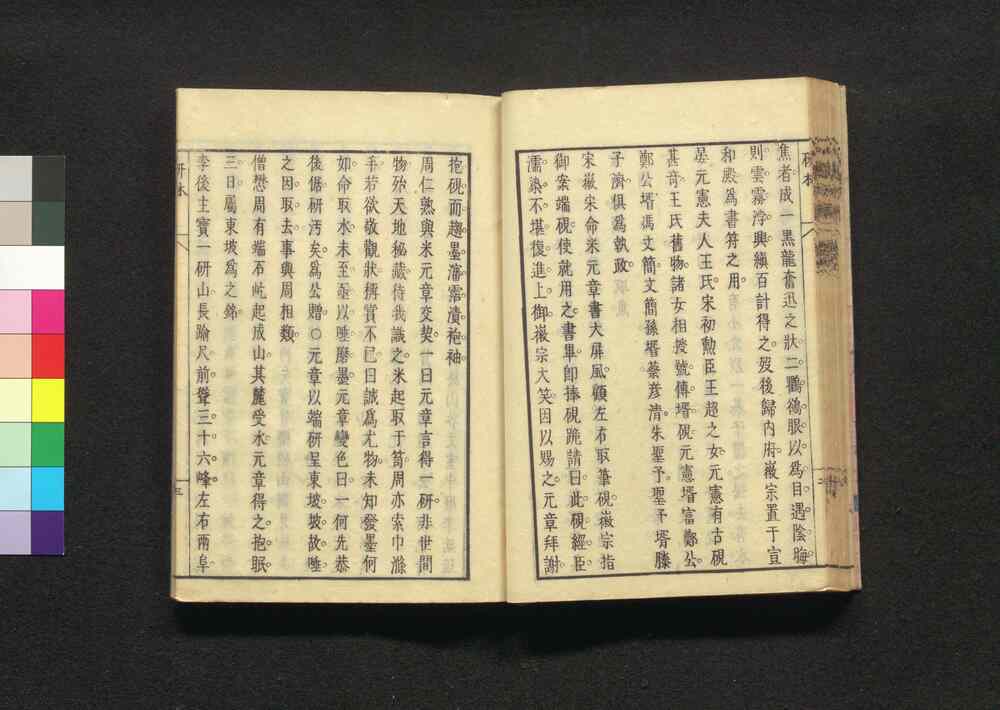 焦者成一黑龍奮迅之狀二鸜鵒眼以爲目遇陰晦
則雲霧浮興縝百計得之歿後歸內府徽宗置于宣
和殿爲書符之用
晏元憲夫人王氏宋初勲臣王超之女元憲有古硯
甚奇王氏舊物諸女相授號傳壻硯元憲壻富鄭公
鄭公壻馮文簡文簡孫壻蔡彦清朱聖予聖予壻滕
子濟俱爲執政
宋徽宋命米元章書大屏風顧左右取筆硯徽宗指
御案端硯使就用之書畢卽捧硯跪請曰此硯經臣
濡染不堪復進上御徽宗大笑因以賜之元章拜謝
抱硯而趨墨瀋霑漬袍袖
周仁熟與米元章交契一日元章言得一硏非世間
物殆天地秘藏待我識之米起取于笥周亦索巾滌
手若欲敬觀狀稱賞不已曰誠爲尤物未知發墨何
如命取水未至亟以唾磨墨元章變色曰一何先恭
後倨硏汚矣爲公贈○元章以端硏呈東坡坡故唾
之因取去事與周相類
僧懋周有端石屹起成山其麓受水元章得之抱眠
三日屬東坡爲之銘
李後主寶一硏山長踰尺前聳三十六峰左右兩阜
硏林
三